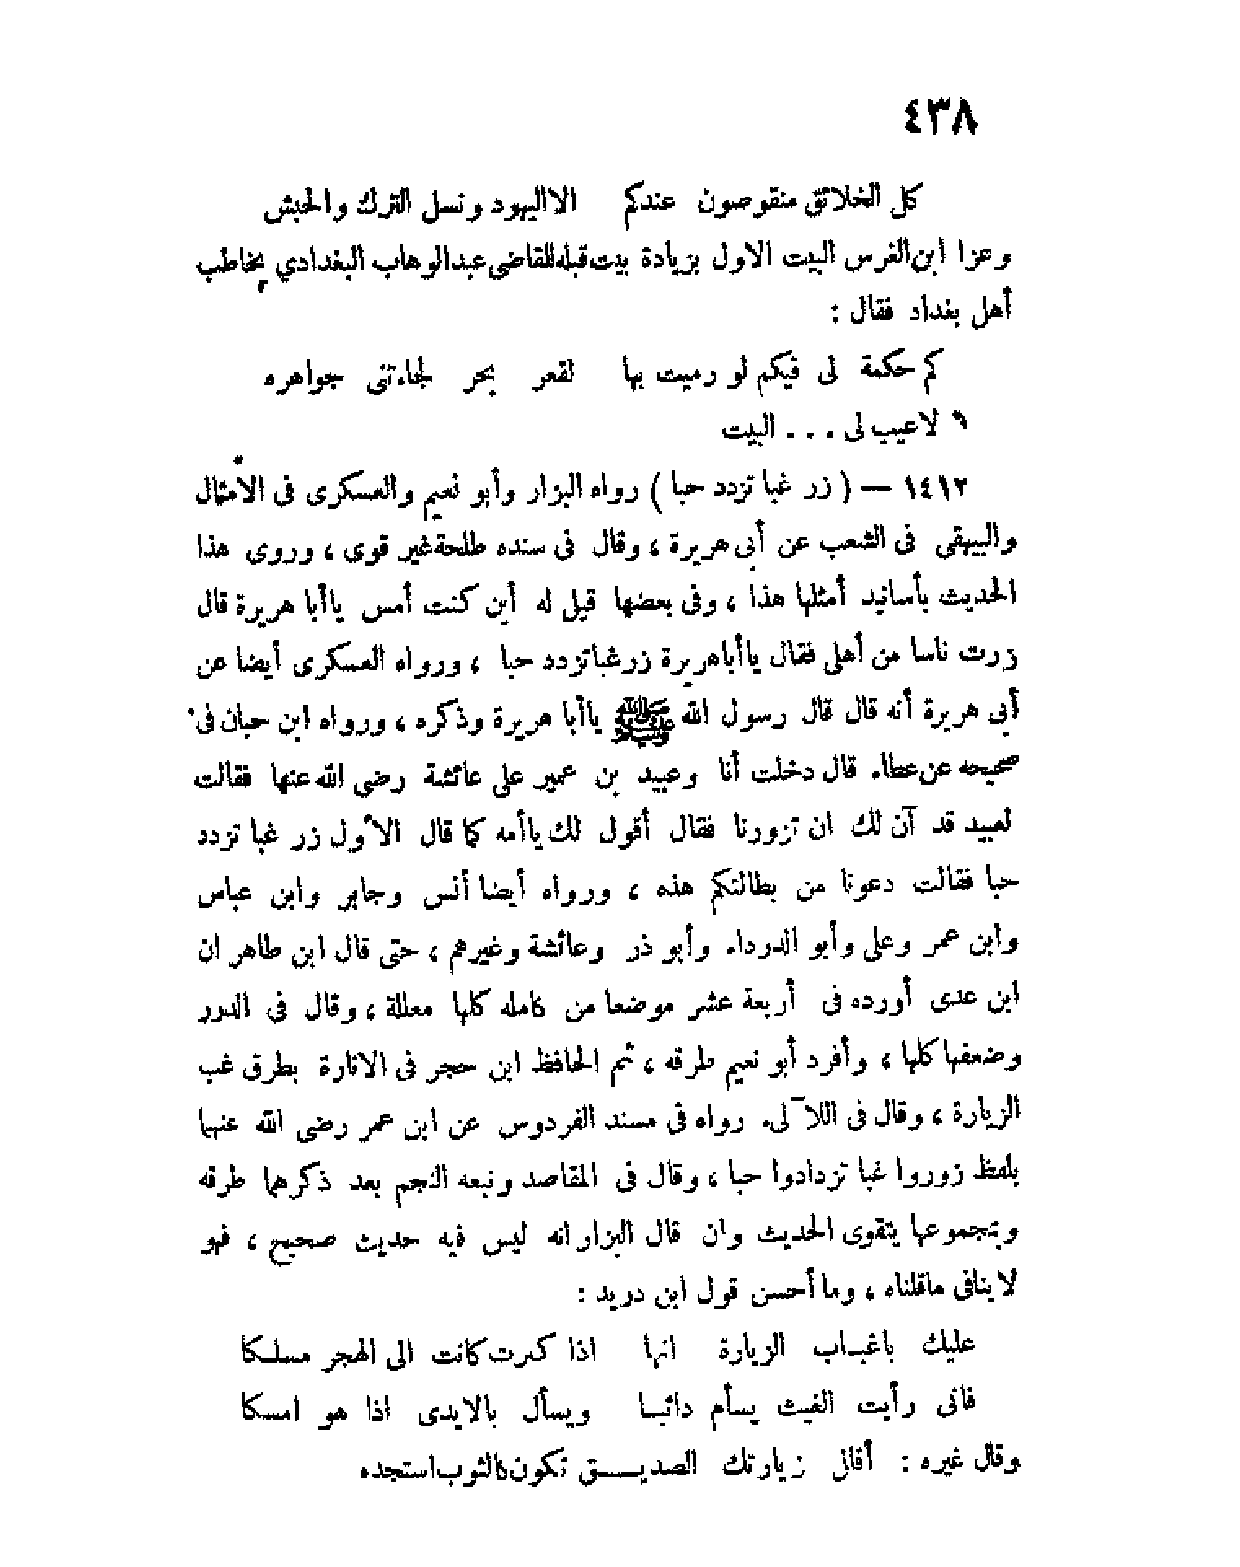 ٤٣٨
كل الخلائق منقوصون عندكم الا اليهود ونسل الترك والحبش
وعزا ابن الغرس البيت الاول بزيادة بيت قبله للقاضى عبدالوهاب البغدادي يخاطب
أهل بغداد فقال :
كم حكمة لى فيكم لو رميت بها لقعر بحر لجاءتنى جواهره
لاعيب لى . . . البيت
١٤١٢ — ( زر غبا تزدد حبا ) رواه البزار وأبو نعيم والعسكرى فى الأمثال
والبيهقى فى الشعب عن أبى هريرة ، وقال فى سنده طلحة غير قوى ، وروى هذا
الحديث بأسانيد أمثلها هذا ، وفى بعضها قيل له أين كنت أمس ياأبا هريرة قال
زرت ناسا من أهلى فقال ياأباهريرة زرغبا تزدد حبا ، ورواه العسكرى أيضا عن
أبى هريرة أنه قال قال رسول الله ﷺ ياأبا هريرة وذكره ، ورواه ابن حبان فى
صحيحه عن عطاء قال دخلت أنا وعبيد بن عمير على عائشة رضى الله عنها فقالت
لعبيد قد آن لك ان تزورنا فقال أقول لك ياأمه كما قال الأول زر غبا تزدد
حبا فقالت دعونا من بطالتكم هذه ، ورواه أيضا أنس وجابر وابن عباس
وابن عمر وعلى وأبو الدرداء وأبو ذر وعائشة وغيرهم ، حتى قال ابن طاهر ان
ابن عدى أورده فى أربعة عشر موضعا من كامله كلها معللة ، وقال فى الدرر
وضعفها كلها ، وأفرد أبو نعيم طرقه ، ثم الحافظ ابن حجر فى الانارة بطرق غب
الزيارة ، وقال فى اللآلىء رواه فى مسند الفردوس عن ابن عمر رضى الله عنهما
بلفظ زوروا غبا تزدادوا حبا ، وقال فى المقاصد وتبعه النجم بعد ذكرهما طرقه
وبمجموعها يتقوى الحديث وان قال البزار انه ليس فيه حديث صحيح ، فهو
لاينافى ماقلناه ، وما أحسن قول ابن دريد :
عليك باغبـاب الزيارة انها اذا كثرت كانت الى الهجر مسلـكا
فانى رأيت الغيث يسأم دائبـا ويسأل بالايدى اذا هو امسكا
وقال غيره : أقلل زيارتك الصديـــق تكون كالثوب استجده